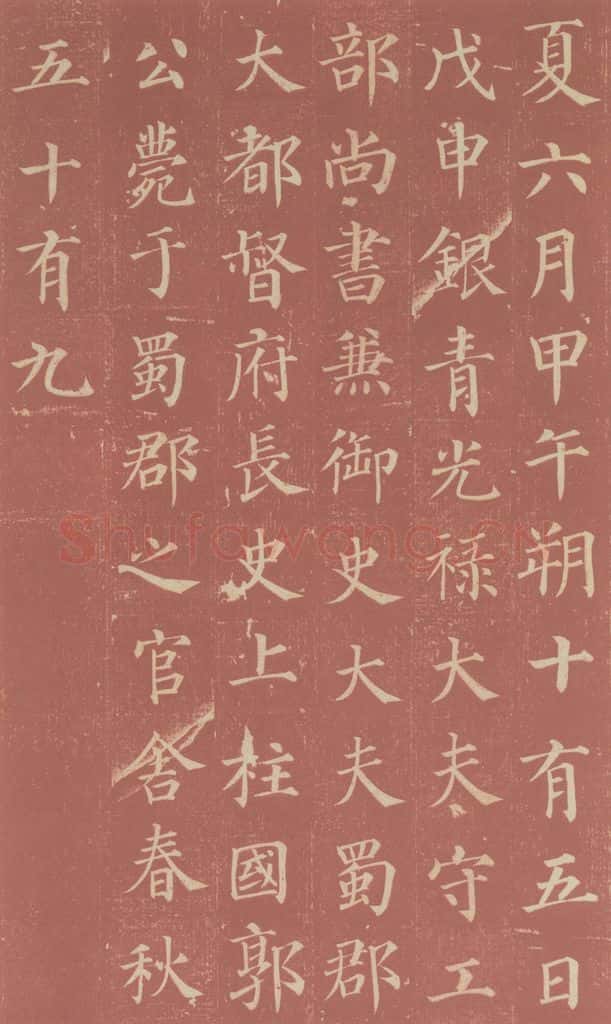 夏六月甲午朔十有五日
戊申銀青光祿大夫守工
部尚書兼御史大夫蜀郡
大都督府長史上柱國郭
公薨于蜀郡之官舍春秋
五十有九
Shufawang.cn